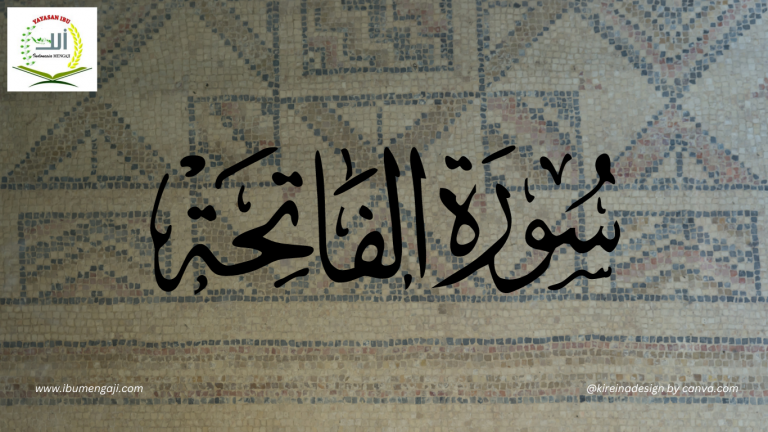 YAYASAN IBU
Indonesia MENGAJI
سُورَةُ الفَاتِحَةِ
www.ibumengaji.com
@kireinadesign by canva.com